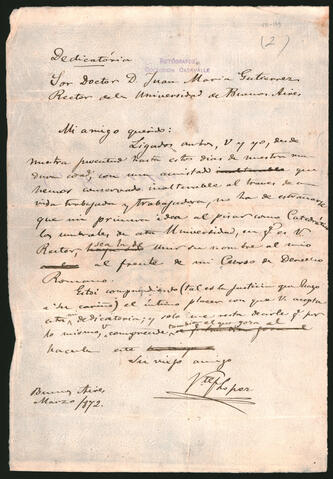 (2)
AUTÓGRAFOS
COLECCION CASAVALLE
Dedicatória
Sor Doctor D. Juan Maria Gutierrez
Rector de la Universidad de Buenos Aires
Mi amigo querido:
Ligados ambos, V y yo, desde
nuestra juventud hasta estos dias de nuestra ma
dura edad, con una amistad que
hemos conservado inalterable al traves de una
vida trabajada y trabajadora, no ha de estrañarse
que mi primera idea al pisar como Catedrático
los umbrales de esta Universidad, en qe es V.
Rector, sea la de unir su nombre al mio
al frente de mi Curso de Derecho
Romano.
Estoi comprendiendo (tal es la justicia que hago
a su cariño) el íntimo placer con que V. acepta
esta dedicatoria; y solo me resta decirle qe por
lo mismo, V comprende tambien el que goza al
hacerla este
Su viejo amigo
Vte F Lopez
Buenos Aires
Marzo /872.